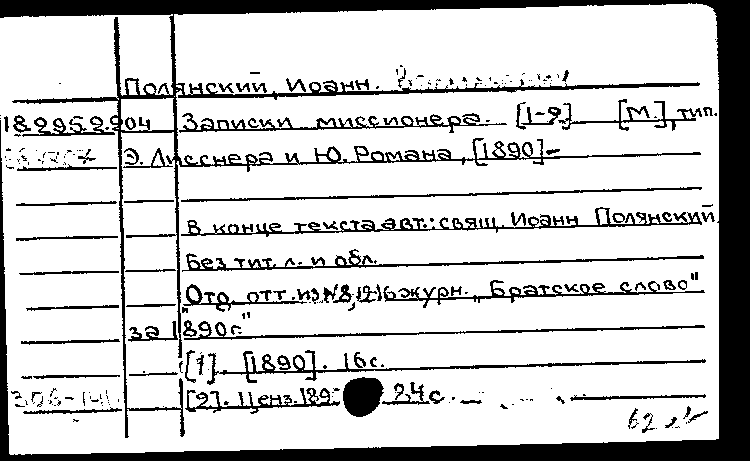 Полянский, Иоанн.
18.295.2.204 Записки миссионера. [1-2] [М.], тип.
Э. Лисснера и Ю. Романа, [1890]-
В конце текста авт.: свящ. Иоанн Полянский
Без тит. л. и обл.
"Отд. отт. из №8, 12-16 журн. „Братское слово"
за 1890г."
[1]. [1890]. 16 с.
306-141 [2]. Ценз. 189 24 с.
62